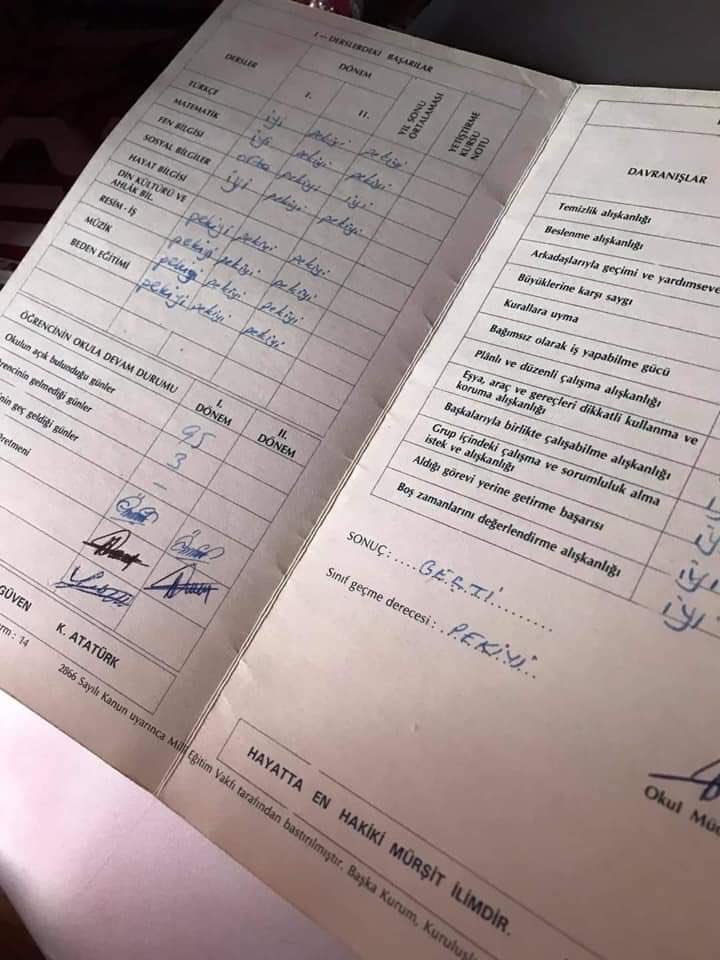 I — DERSLERDEKİ BAŞARILAR
DERSLER
DÖNEM
I.
II.
YIL SONU
ORTALAMASI
YETİŞTİRME
KURSU
NOTU
TÜRKÇE iyi pekiyi pekiyi
MATEMATİK iyi pekiyi pekiyi
FEN BİLGİSİ orta pekiyi iyi
SOSYAL BİLGİLER iyi pekiyi
HAYAT BİLGİSİ
DİN KÜLTÜRÜ VE
AHLÂK BİL. pekiyi pekiyi pekiyi
RESİM - İŞ pekiyi pekiyi pekiyi
MÜZİK pekiyi pekiyi pekiyi
BEDEN EĞİTİMİ pekiyi pekiyi pekiyi
ÖĞRENCİNİN OKULA DEVAM DURUMU
I.
DÖNEM
II.
DÖNEM
Okulun açık bulunduğu günler 95
gelmediği günler 3
geç geldiği günler —
GÜVEN
K. ATATÜRK
: 14
2866 Sayılı Kanun uyarınca Milli Eğitim Vakfı tarafından bastırılmıştır. Başka Kurum,
DAVRANIŞLAR
Temizlik alışkanlığı
Beslenme alışkanlığı
Arkadaşlarıyla geçimi ve
Büyüklerine karşı saygı
Kurallara uyma
Bağımsız olarak iş yapabilme gücü
Plânlı ve düzenli çalışma alışkanlığı
Eşya, araç ve gereçleri dikkatli kullanma ve
koruma alışkanlığı
Başkalarıyla birlikte çalışabilme alışkanlığı
Grup içindeki çalışma ve sorumluluk alma
istek ve alışkanlığı
Aldığı görevi yerine getirme başarısı iyi
Boş zamanlarını değerlendirme alışkanlığı iyi
SONUÇ : ....GEÇTİ.........
Sınıf geçme derecesi : ..PEKİYİ...
Okul
HAYATTA EN HAKİKİ MÜRŞİT İLİMDİR.